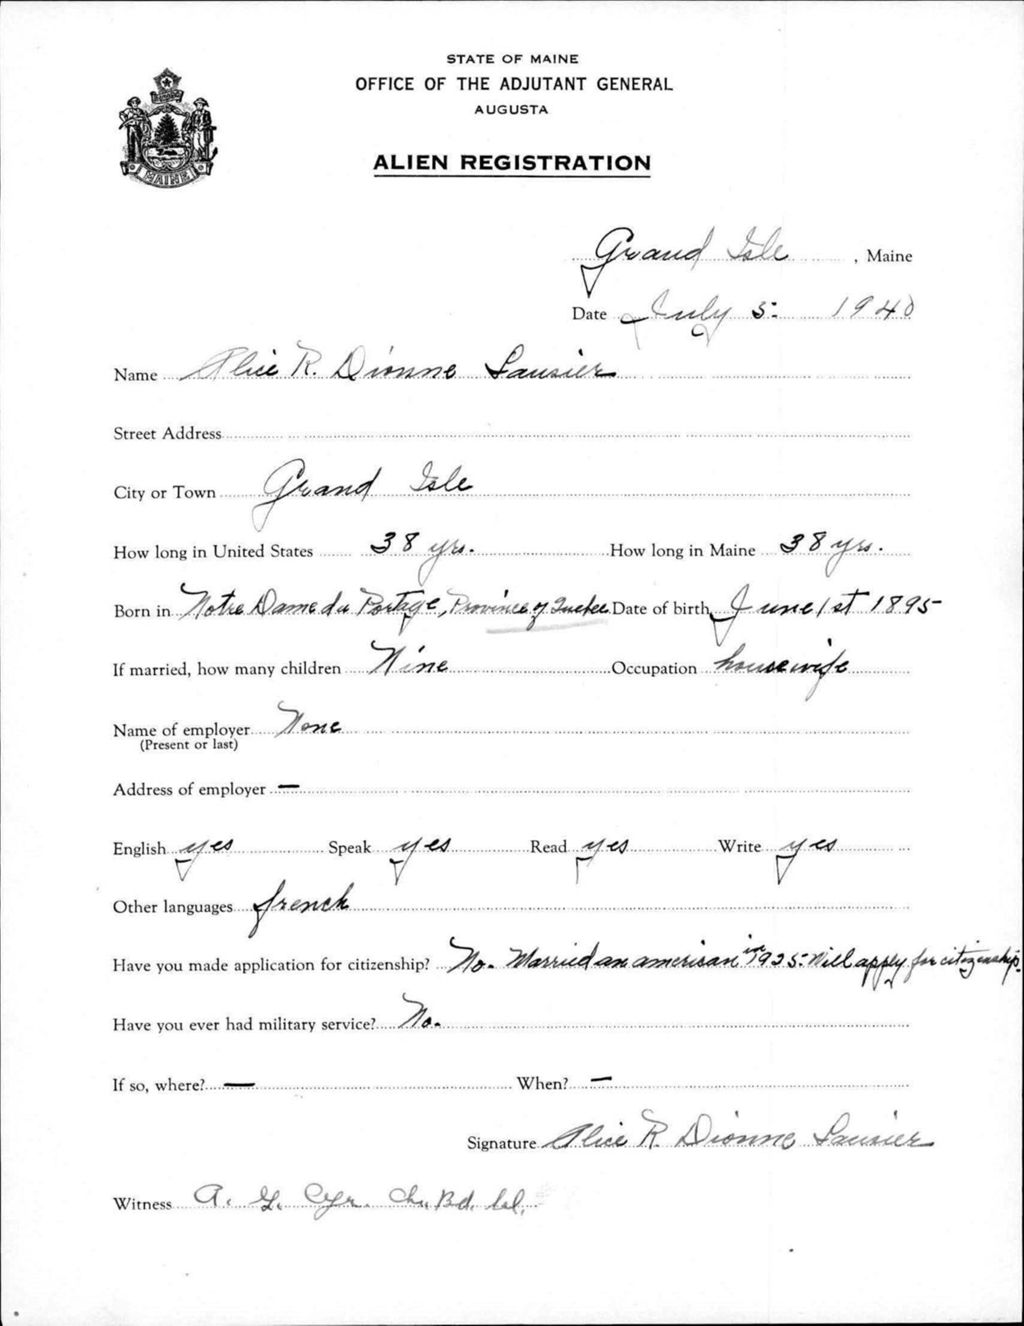 STATE OF MAINE
OFFICE OF THE ADJUTANT GENERAL
AUGUSTA
ALIEN REGISTRATION
MAINE
Grand Isle, Maine
Date July 5: 1940
Name Alice R. Dionne Lausier
Street Address
City or Town Grand Isle
How long in United States 38 yrs. How long in Maine 38 yrs.
Born in Notre Dame du Portage, Province of Quebec Date of birth June 1st 1895
If married, how many children Nine Occupation housewife
Name of employer None
(Present or last)
Address of employer —
English yes Speak yes Read yes Write yes
Other languages french
Have you made application for citizenship? No. Married an american in 1925. Will apply for citizenship.
Have you ever had military service? No.
If so, where? — When? —
Signature Alice R. Dionne Lausier
Witness A. G. Cyr. Ch. Bd. Sel.